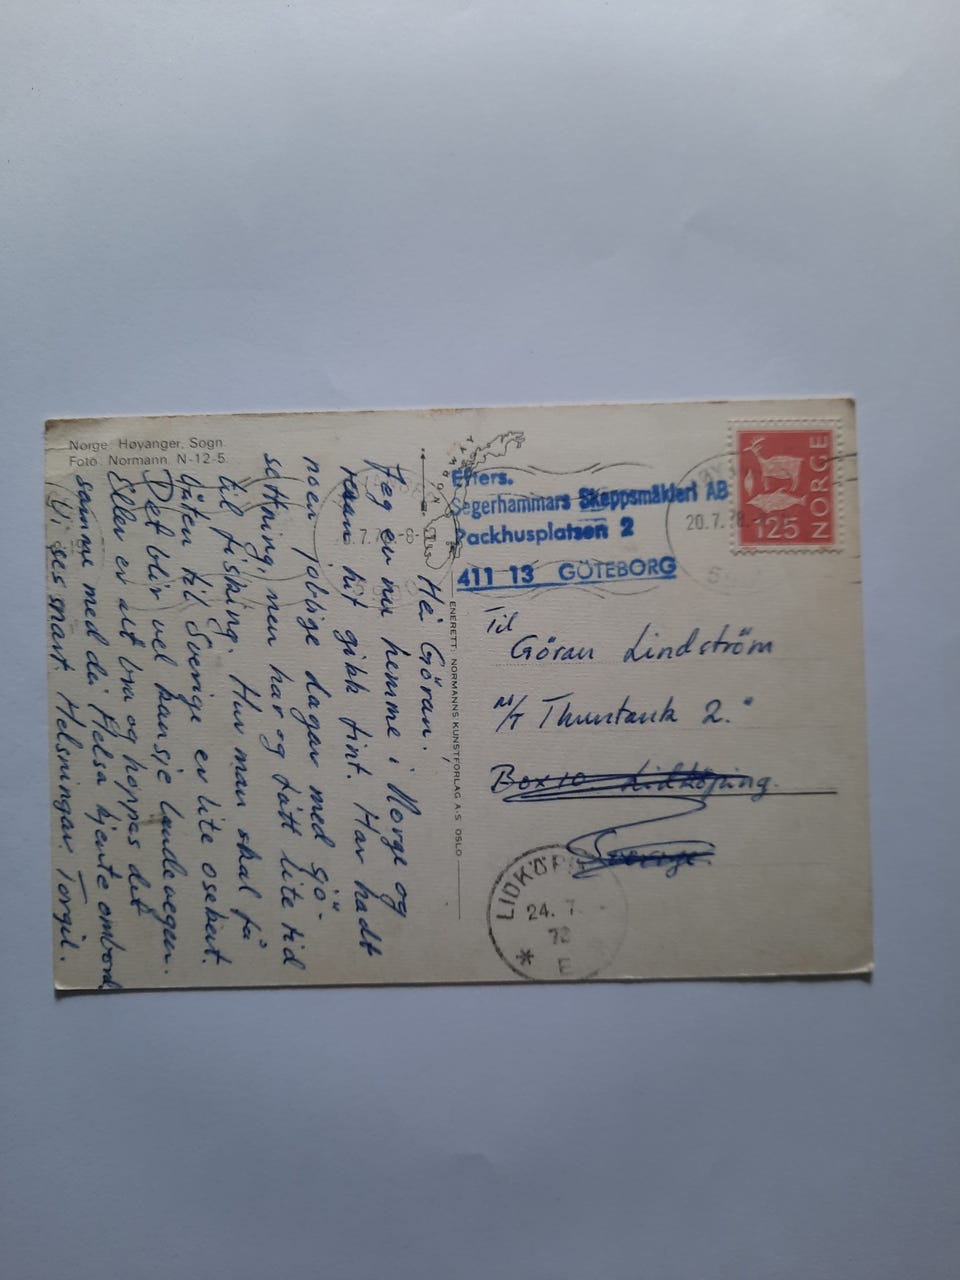 Norge. Høyanger, Sogn.
Foto: Normann. N-12-5.
NORWAY
Hei Göran.
Jeg er nu hemme i Norge og
turen hit gikk fint. Har hadt
noen jobbige dagar med sjö-
settning, men har og fått lite tid
til fisking. Hur man skal få
båten til Sverige er lite osekert.
Det blir vel kansje landevegen.
Eller er alt bra og hoppes det
samme med dei. Helsa kjente ombord
Vi ses snart. Helsningar. Torgil.
ENERETT: NORMANNS KUNSTFORLAG A.S OSLO
NORGE
125
20.7.
Efters.
Segerhammars Skeppsmäkleri AB
Packhusplatsen 2
411 13 GÖTEBORG
Til
Göran Lindström
M/T Thuntank 2.
Box 10. Lidköping.
Sverige.
LIDKÖPING
24. 7.
72
* E